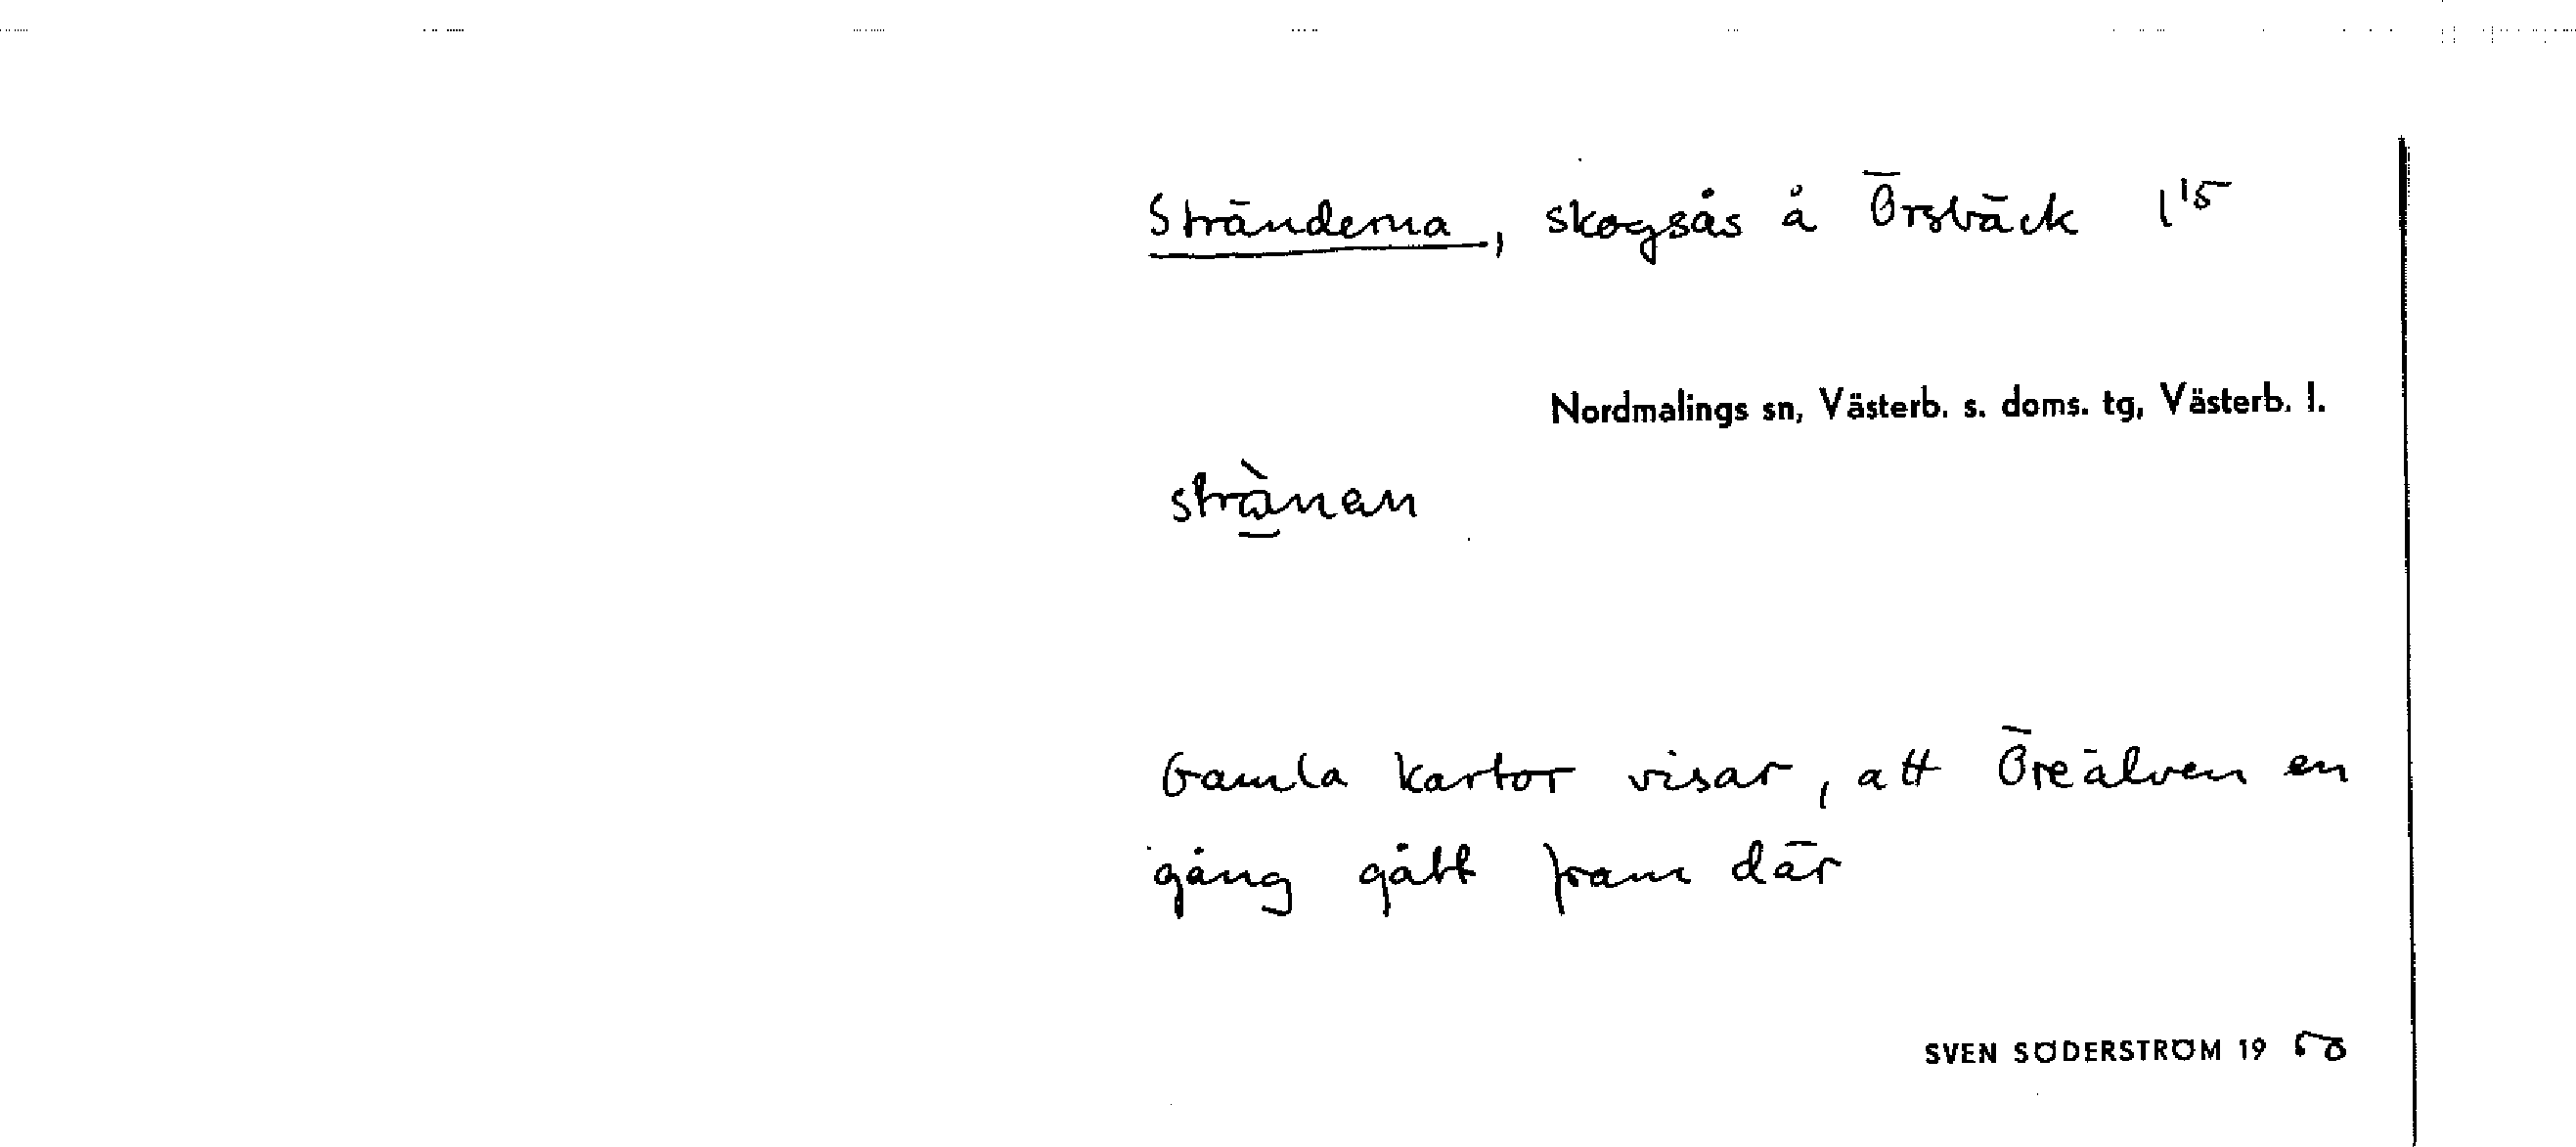 Stränderna, skogsås å Örsbäck 1¹⁵
Nordmalings sn, Västerb. s. doms. tg, Västerb. l.
strànan
Gamla kartor visar, att Öreälven en
gång gått fram där
SVEN SÖDERSTRÖM 19 50